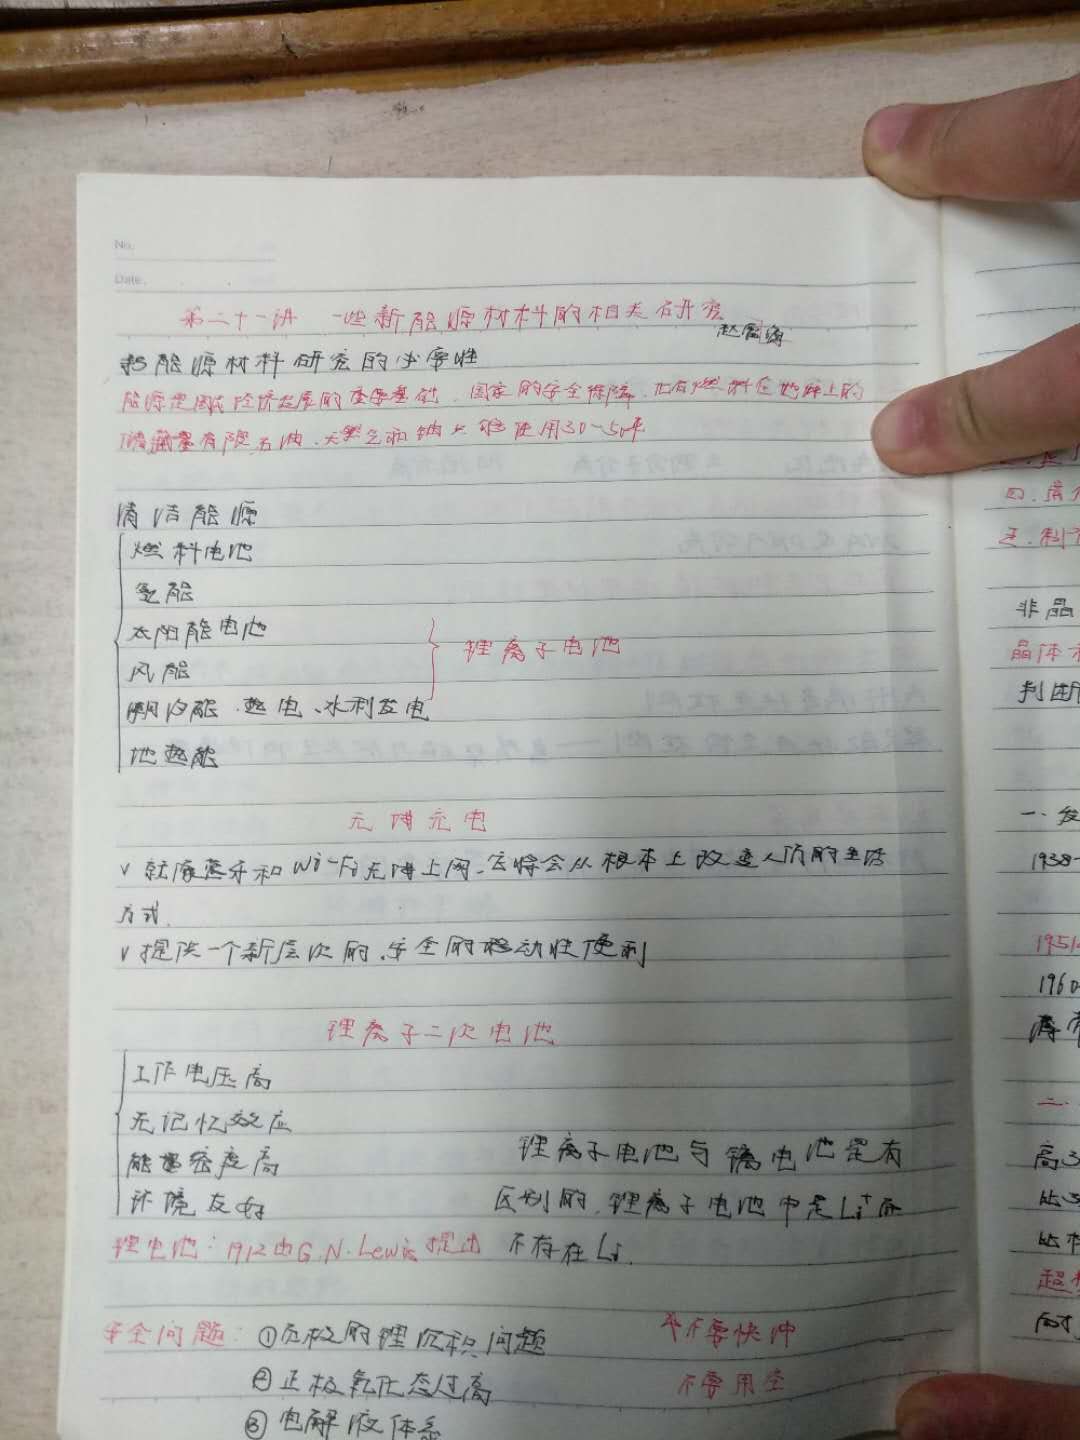 No.
Date.
第二十一讲 一些新能源材料的相关研究
新能源材料研究的必要性
能源是国民经济发展的重要基础、国家的安全保障，化石燃料在地球上的
储藏量有限，石油、天然气和铀只够使用30~50年
清洁能源
燃料电池
氢能
太阳能电池
风能
锂离子电池
潮汐能、热电、水利发电
地热能
无线充电
∨ 就像蓝牙和Wi-Fi无线上网，它将会从根本上改变人们的生活
方式.
∨ 提供一个新层次的、安全的移动性便利
锂离子二次电池
工作电压高
无记忆效应
能量密度高
环境友好
锂离子电池与锂电池是有
区别的，锂离子电池中是Li⁺而
不存在Li.
锂电池：1912由G.N.Lewis提出
安全问题：①负极的锂沉积问题
不要快冲
②正极氧化态过高
不要用空
③电解液体系
四.
非晶
晶体
判断
一.发
1938
1951
1960
薄
二.
高
比
比
超